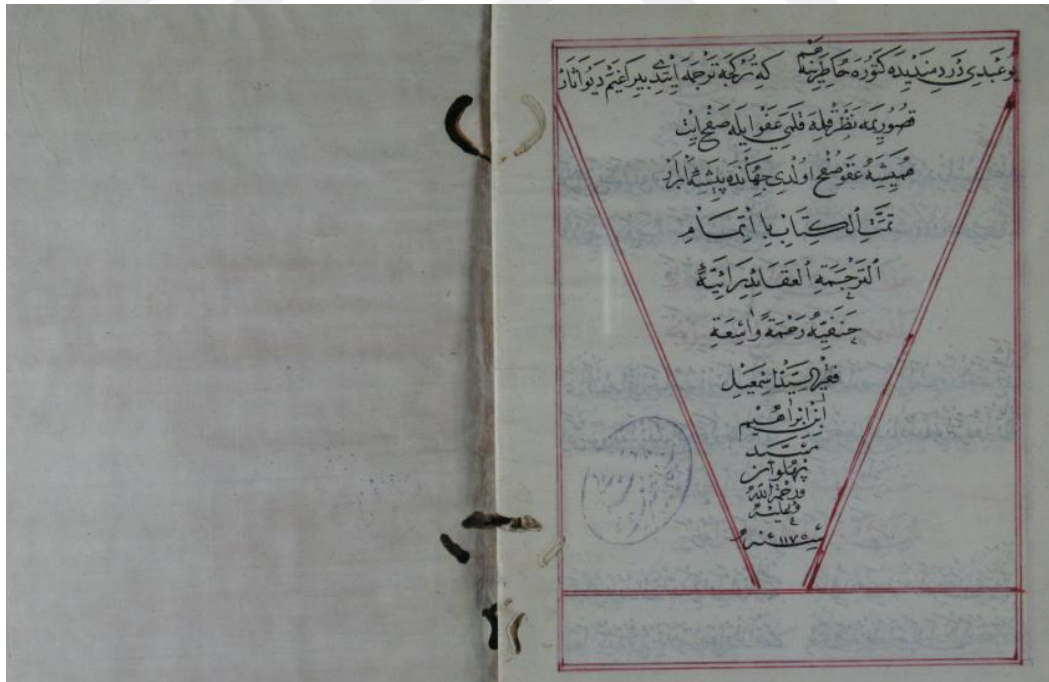 بو عبدى دردمنديده كتوره خاطرينه غم كه تركجه ترجمه ايتدى بير اغيم ديو آثار
قصوريمه نظر قلمه قلمى عفو ايله صفح ايت
هميشه عفو صفح اولدى جهانده پيشه ابرار
تمت الكتاب با اتمام
الترجمة العقائد
حنفية رحمة واسعة
فقير السيد اسمعيل
ابن ابراهيم
سيد
پهلوان
ورحمة الله
عليه
سنه ١١٧٥